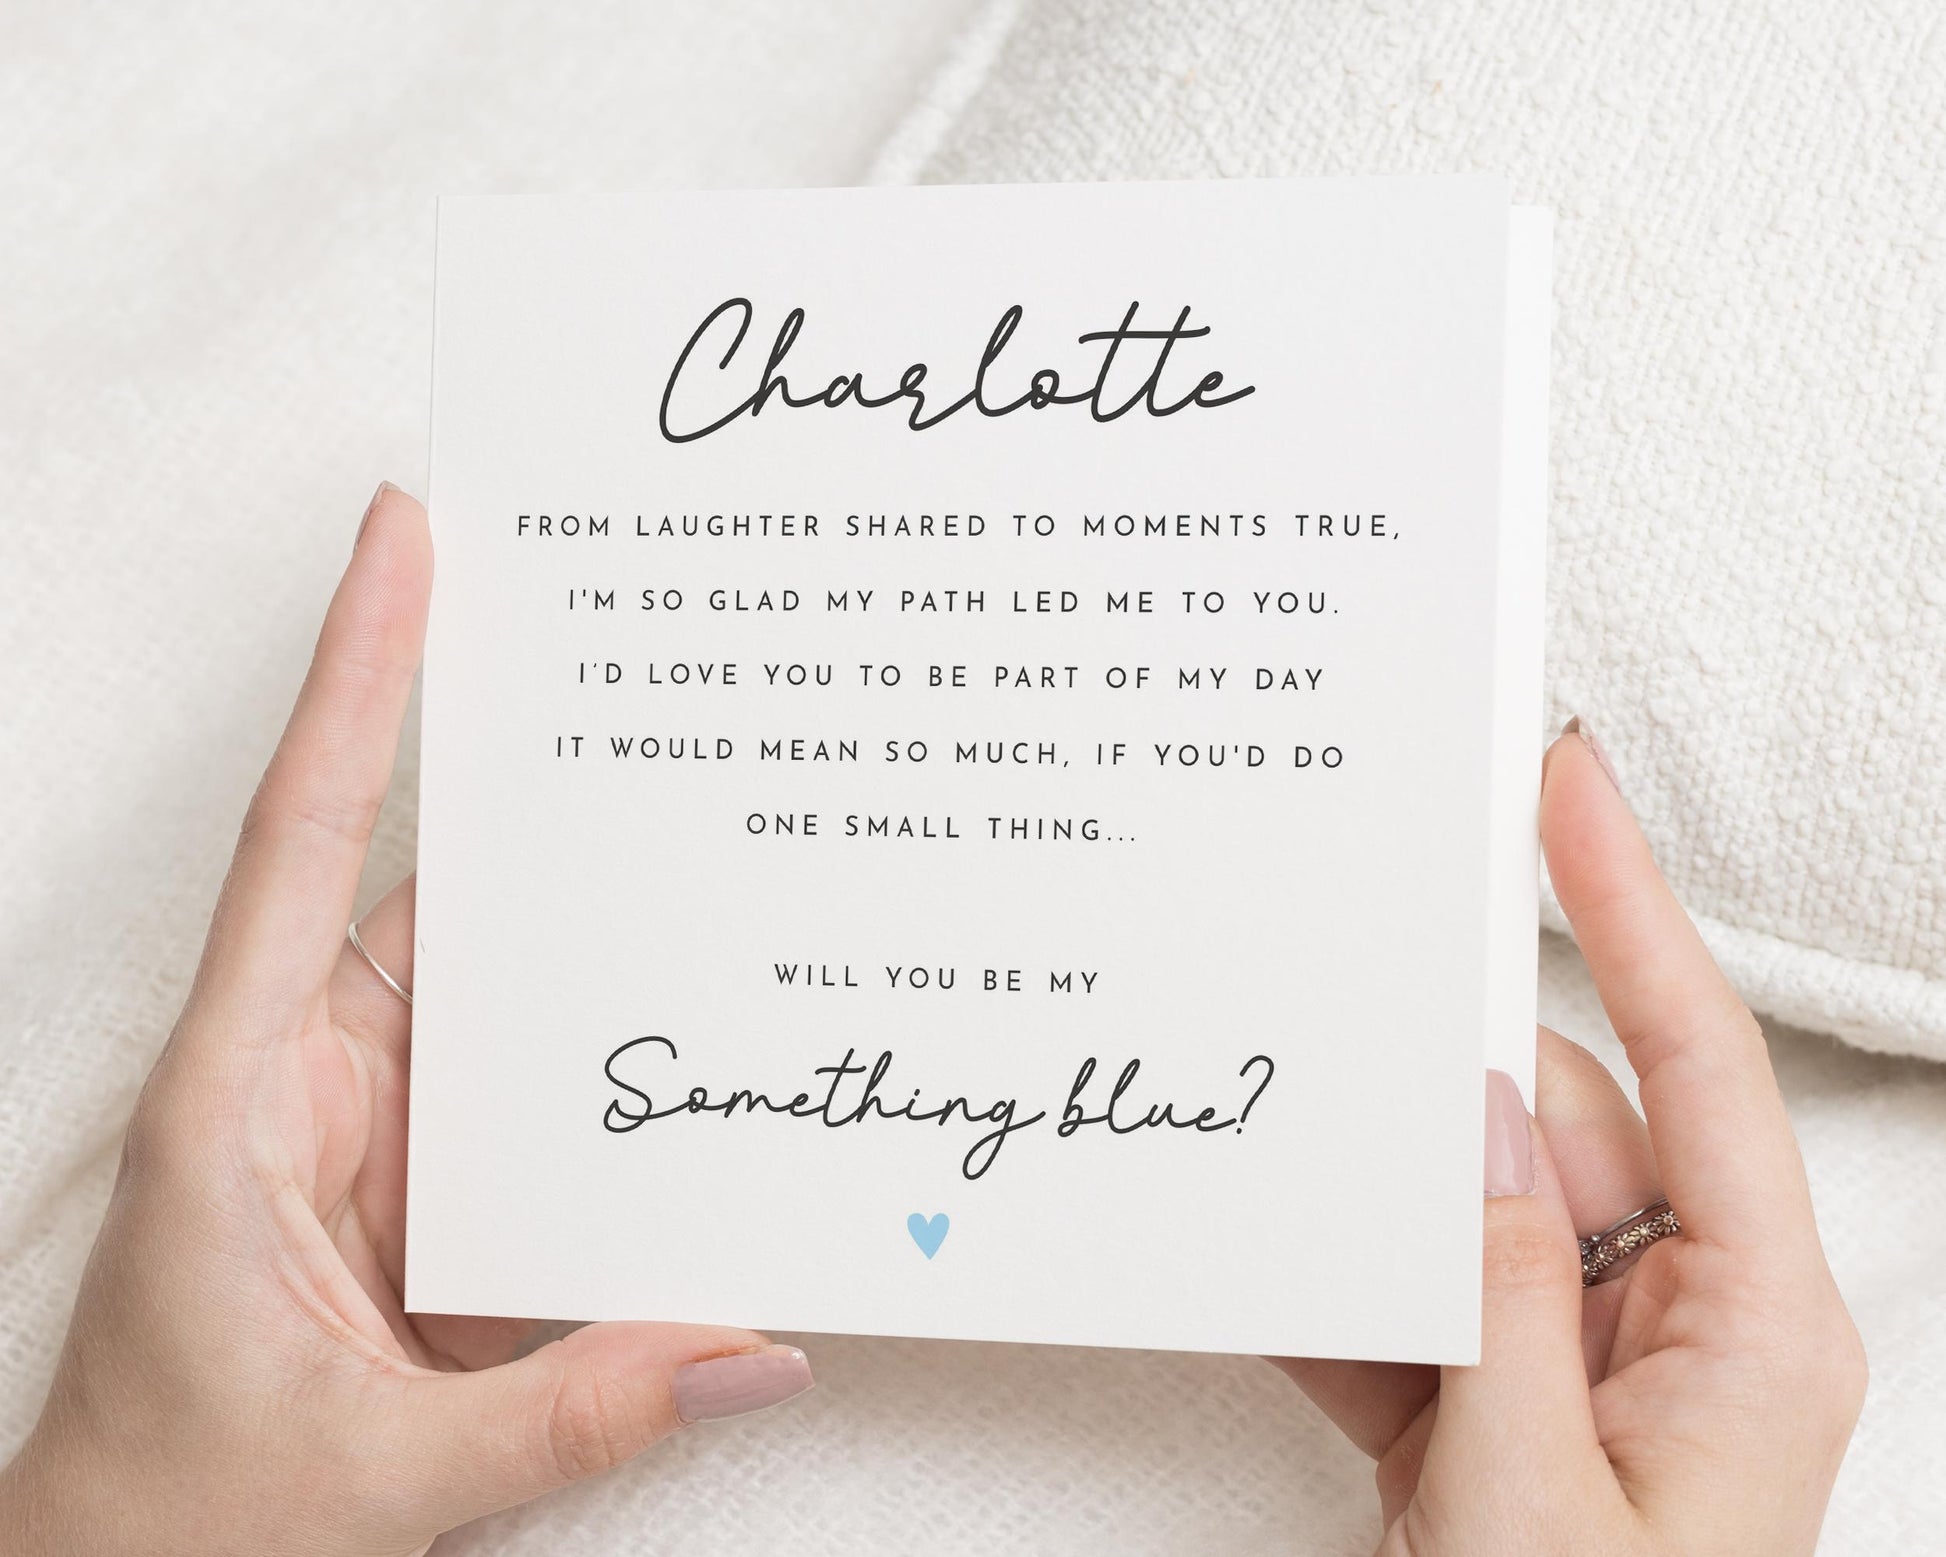 Charlotte
FROM LAUGHTER SHARED TO MOMENTS TRUE,
I'M SO GLAD MY PATH LED ME TO YOU.
I'D LOVE YOU TO BE PART OF MY DAY
IT WOULD MEAN SO MUCH, IF YOU'D DO
ONE SMALL THING...
WILL YOU BE MY
Something blue?